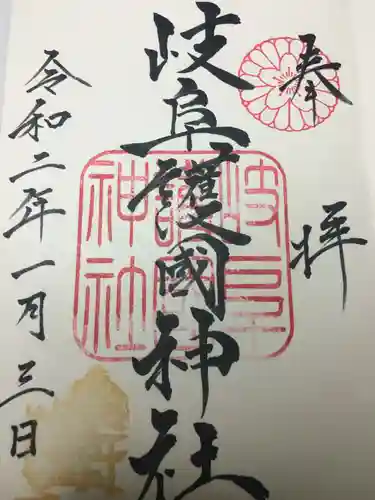 奉拝
岐阜護國神社
岐阜護國神社
令和二年一月三日